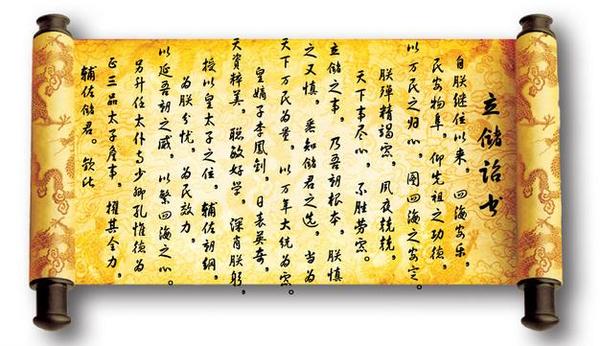 立储诏书
自朕继位以来，四海安乐，
民安物阜，仰先祖之功德，
以万民之归心，图四海之安定。
朕殚精竭虑，夙夜兢兢，
天下事尽心，不胜劳虑。
立储之事，乃吾朝根本，朕慎
之又慎，悉知储君之选，当为
天下万民为量，以万年大统为虑。
皇嫡子李凤钊，日表英奇，
天资粹美，聪敏好学，深肖朕躬，
授以皇太子之位，辅佐朝纲，
为朕分忧，为民效力，
以延吾朝之盛，以繁四海之心。
另升任太仆寺少卿孔惟德为
正三品太子詹事，擢其全力，
辅佐储君。钦此